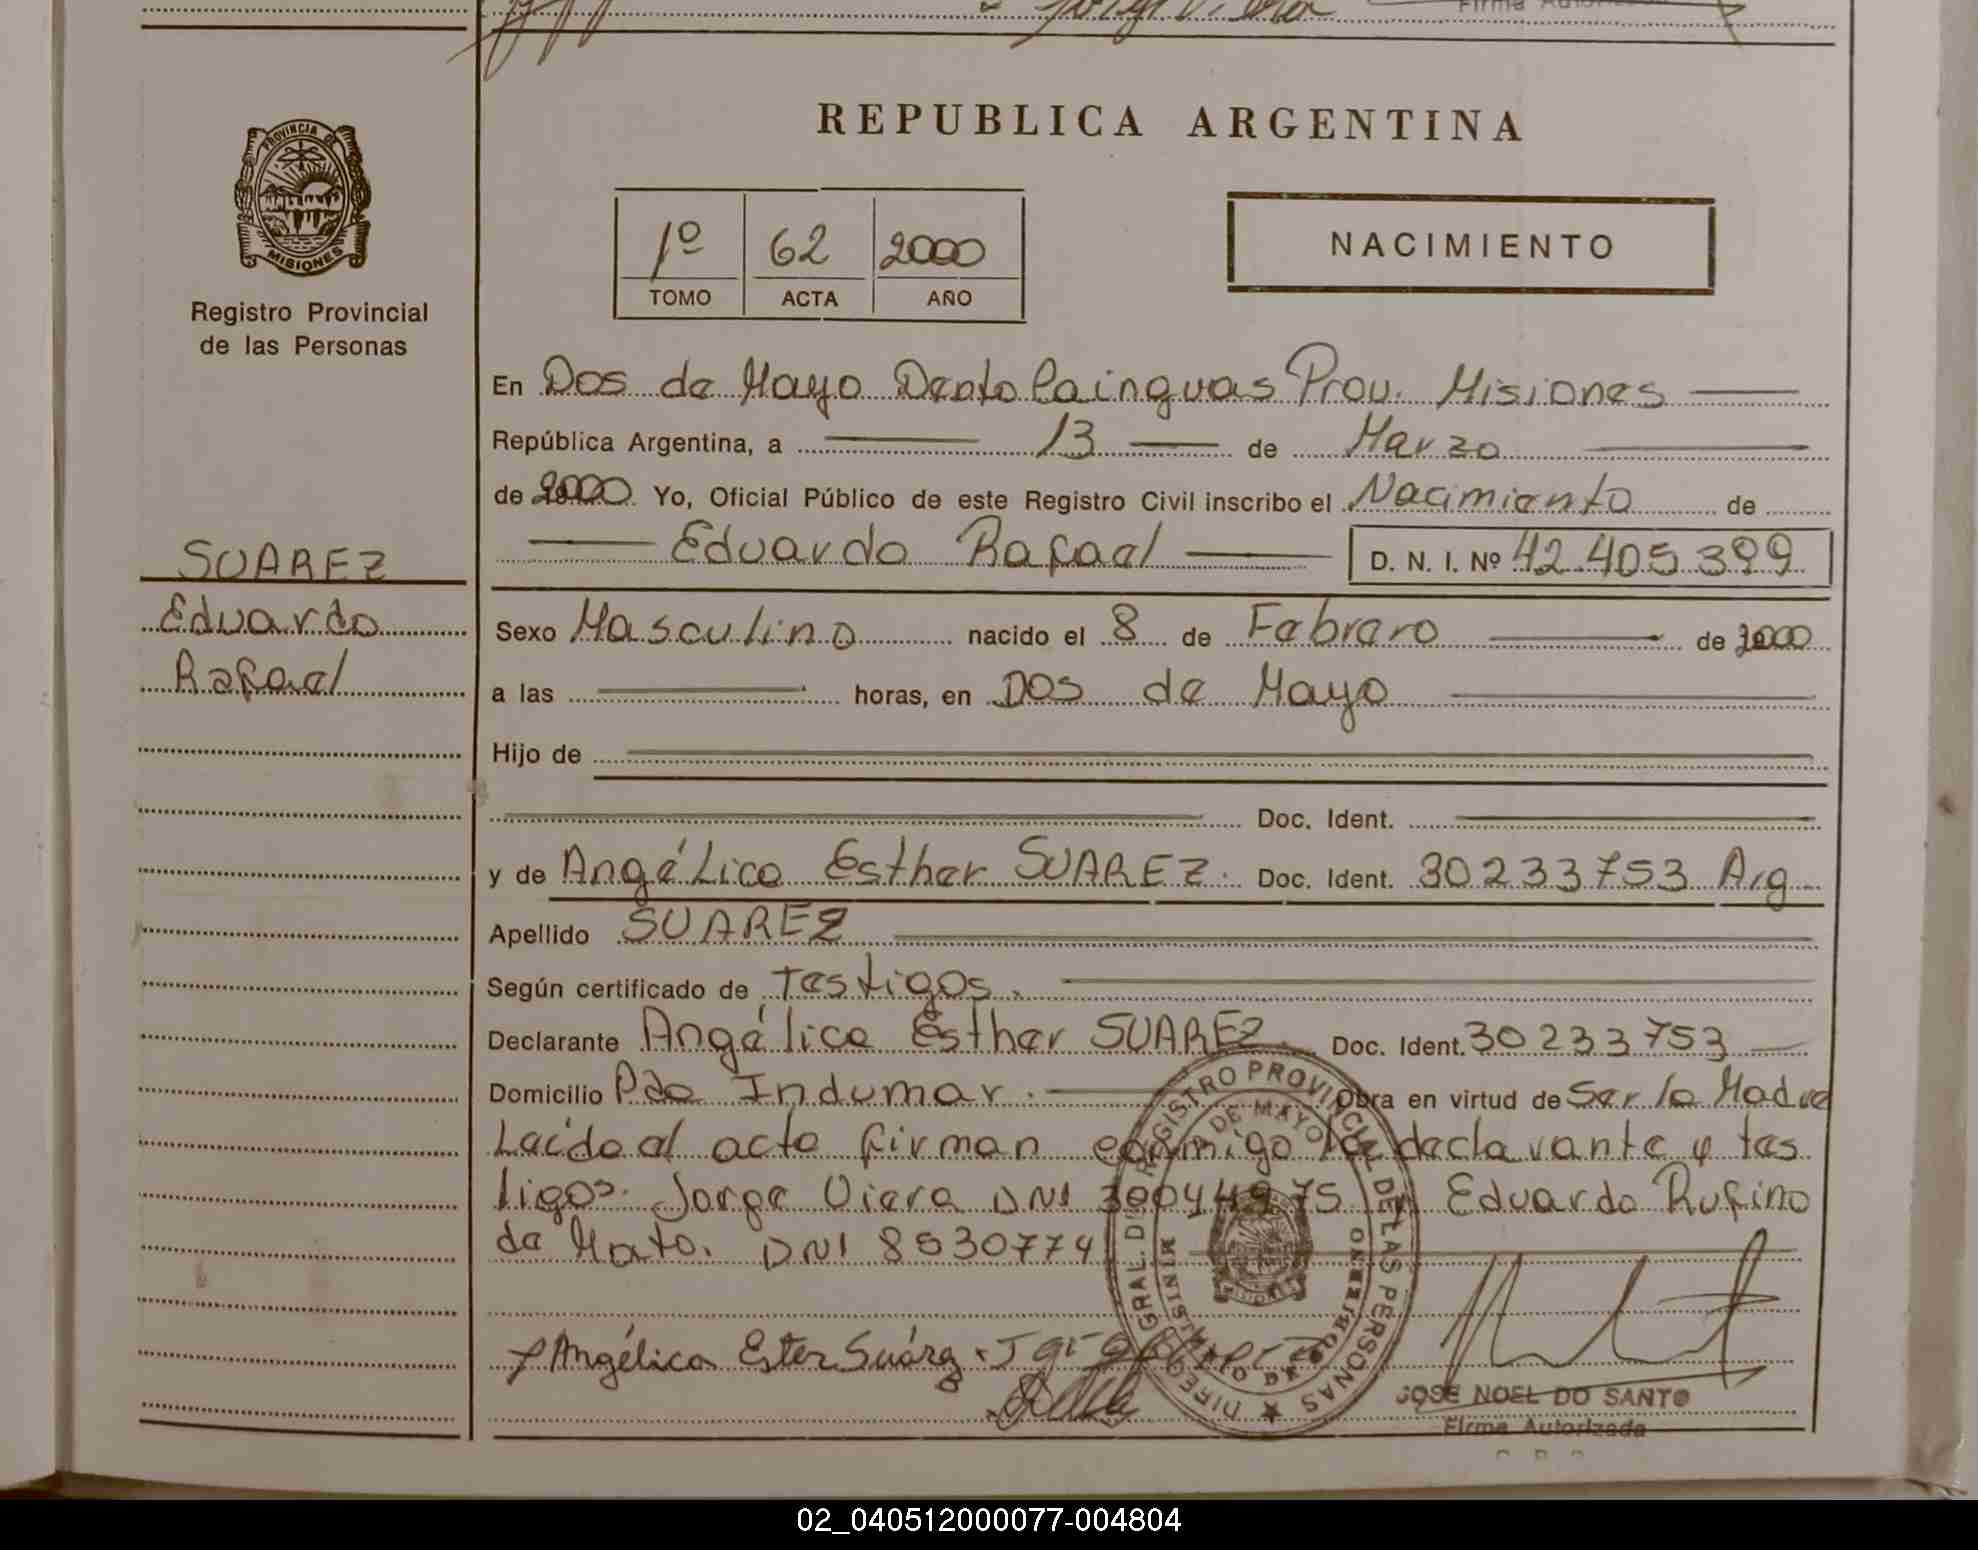 Firma Autorizada
PROVINCIA DE
MISIONES
Registro Provincial
de las Personas
SUAREZ
Eduardo
Rafael
REPUBLICA ARGENTINA
1º 62 2000
TOMO ACTA AÑO
NACIMIENTO
En Dos de Mayo Depto Cainguas Prov. Misiones
República Argentina, a 13 de Marzo
de 2000 Yo, Oficial Público de este Registro Civil inscribo el Nacimiento de
Eduardo Rafael D. N. I. Nº 42.405.399
Sexo Masculino nacido el 8 de Febrero de 2000
a las horas, en Dos de Mayo
Hijo de
Doc. Ident.
y de Angélica Esther SUAREZ. Doc. Ident. 30233753 Arg
Apellido SUAREZ
Según certificado de Testigos.
Declarante Angélica Esther SUAREZ. Doc. Ident. 30233753
Domicilio Pje Indumar. Obra en virtud de Ser la Madre
Leido el acta firman conmigo la declarante y tes
tigos. Jorge Viera DNI Eduardo Rufino
da Mato. DNI 8530774
Angélica Ester Suárez
DIREC. GRAL. DE REGISTRO PROVINCIAL DE LAS PERSONAS
DE MAYO
MINISTERIO DE GOBIERNO
MISIONES
JOSE NOEL DO SANTO
Firma Autorizada
02_040512000077-004804